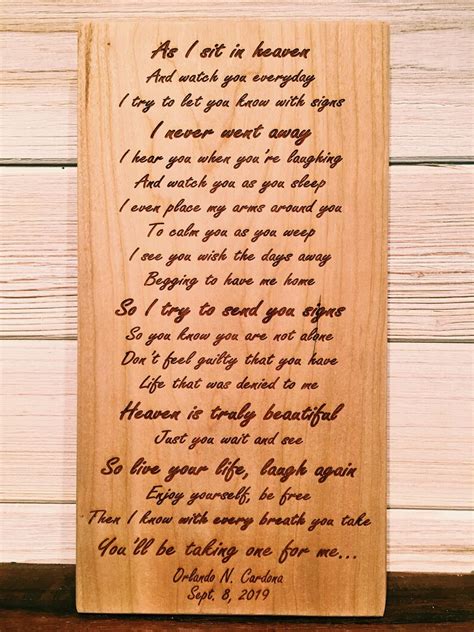 As I sit in heaven
And watch you everyday
I try to let you know with signs
I never went away
I hear you when you're laughing
And watch you as you sleep
I even place my arms around you
To calm you as you weep
I see you wish the days away
Begging to have me home
So I try to send you signs
So you know you are not alone
Don't feel guilty that you have
Life that was denied to me
Heaven is truly beautiful
Just you wait and see
So live your life, laugh again
Enjoy yourself, be free
Then I know with every breath you take
You'll be taking one for me...
Orlando N. Cardona
Sept. 8, 2019